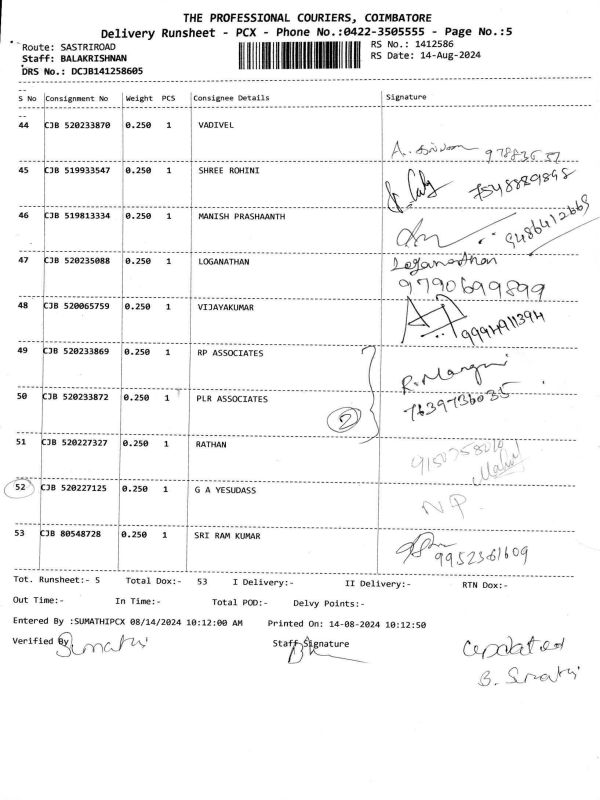 THE PROFESSIONAL COURIERS, COIMBATORE
Delivery Runsheet - PCX - Phone No.:0422-3505555 - Page No.:5
Route: SASTRIROAD RS No.: 1412586
Staff: BALAKRISHNAN RS Date: 14-Aug-2024
DRS No.: DCJB141258605
S No Consignment No Weight PCS Consignee Details Signature
44 CJB 520233870 0.250 1 VADIVEL
45 CJB 519933547 0.250 1 SHREE ROHINI
7548889898
46 CJB 519813334 0.250 1 MANISH PRASHAANTH
9486412669
47 CJB 520235088 0.250 1 LOGANATHAN Loganathan
9790699899
48 CJB 520065759 0.250 1 VIJAYAKUMAR
9994911394
49 CJB 520233869 0.250 1 RP ASSOCIATES
50 CJB 520233872 0.250 1 PLR ASSOCIATES
2 7639736035
51 CJB 520227327 0.250 1 RATHAN
52 CJB 520227125 0.250 1 G A YESUDASS NP
53 CJB 80548728 0.250 1 SRI RAM KUMAR
9952361609
Tot. Runsheet:- 5 Total Dox:- 53 I Delivery:- II Delivery:- RTN Dox:-
Out Time:- In Time:- Total POD:- Delvy Points:-
Entered By :SUMATHIPCX 08/14/2024 10:12:00 AM Printed On: 14-08-2024 10:12:50
Verified By Sumathi Staff Signature Updated
B. Sumathi